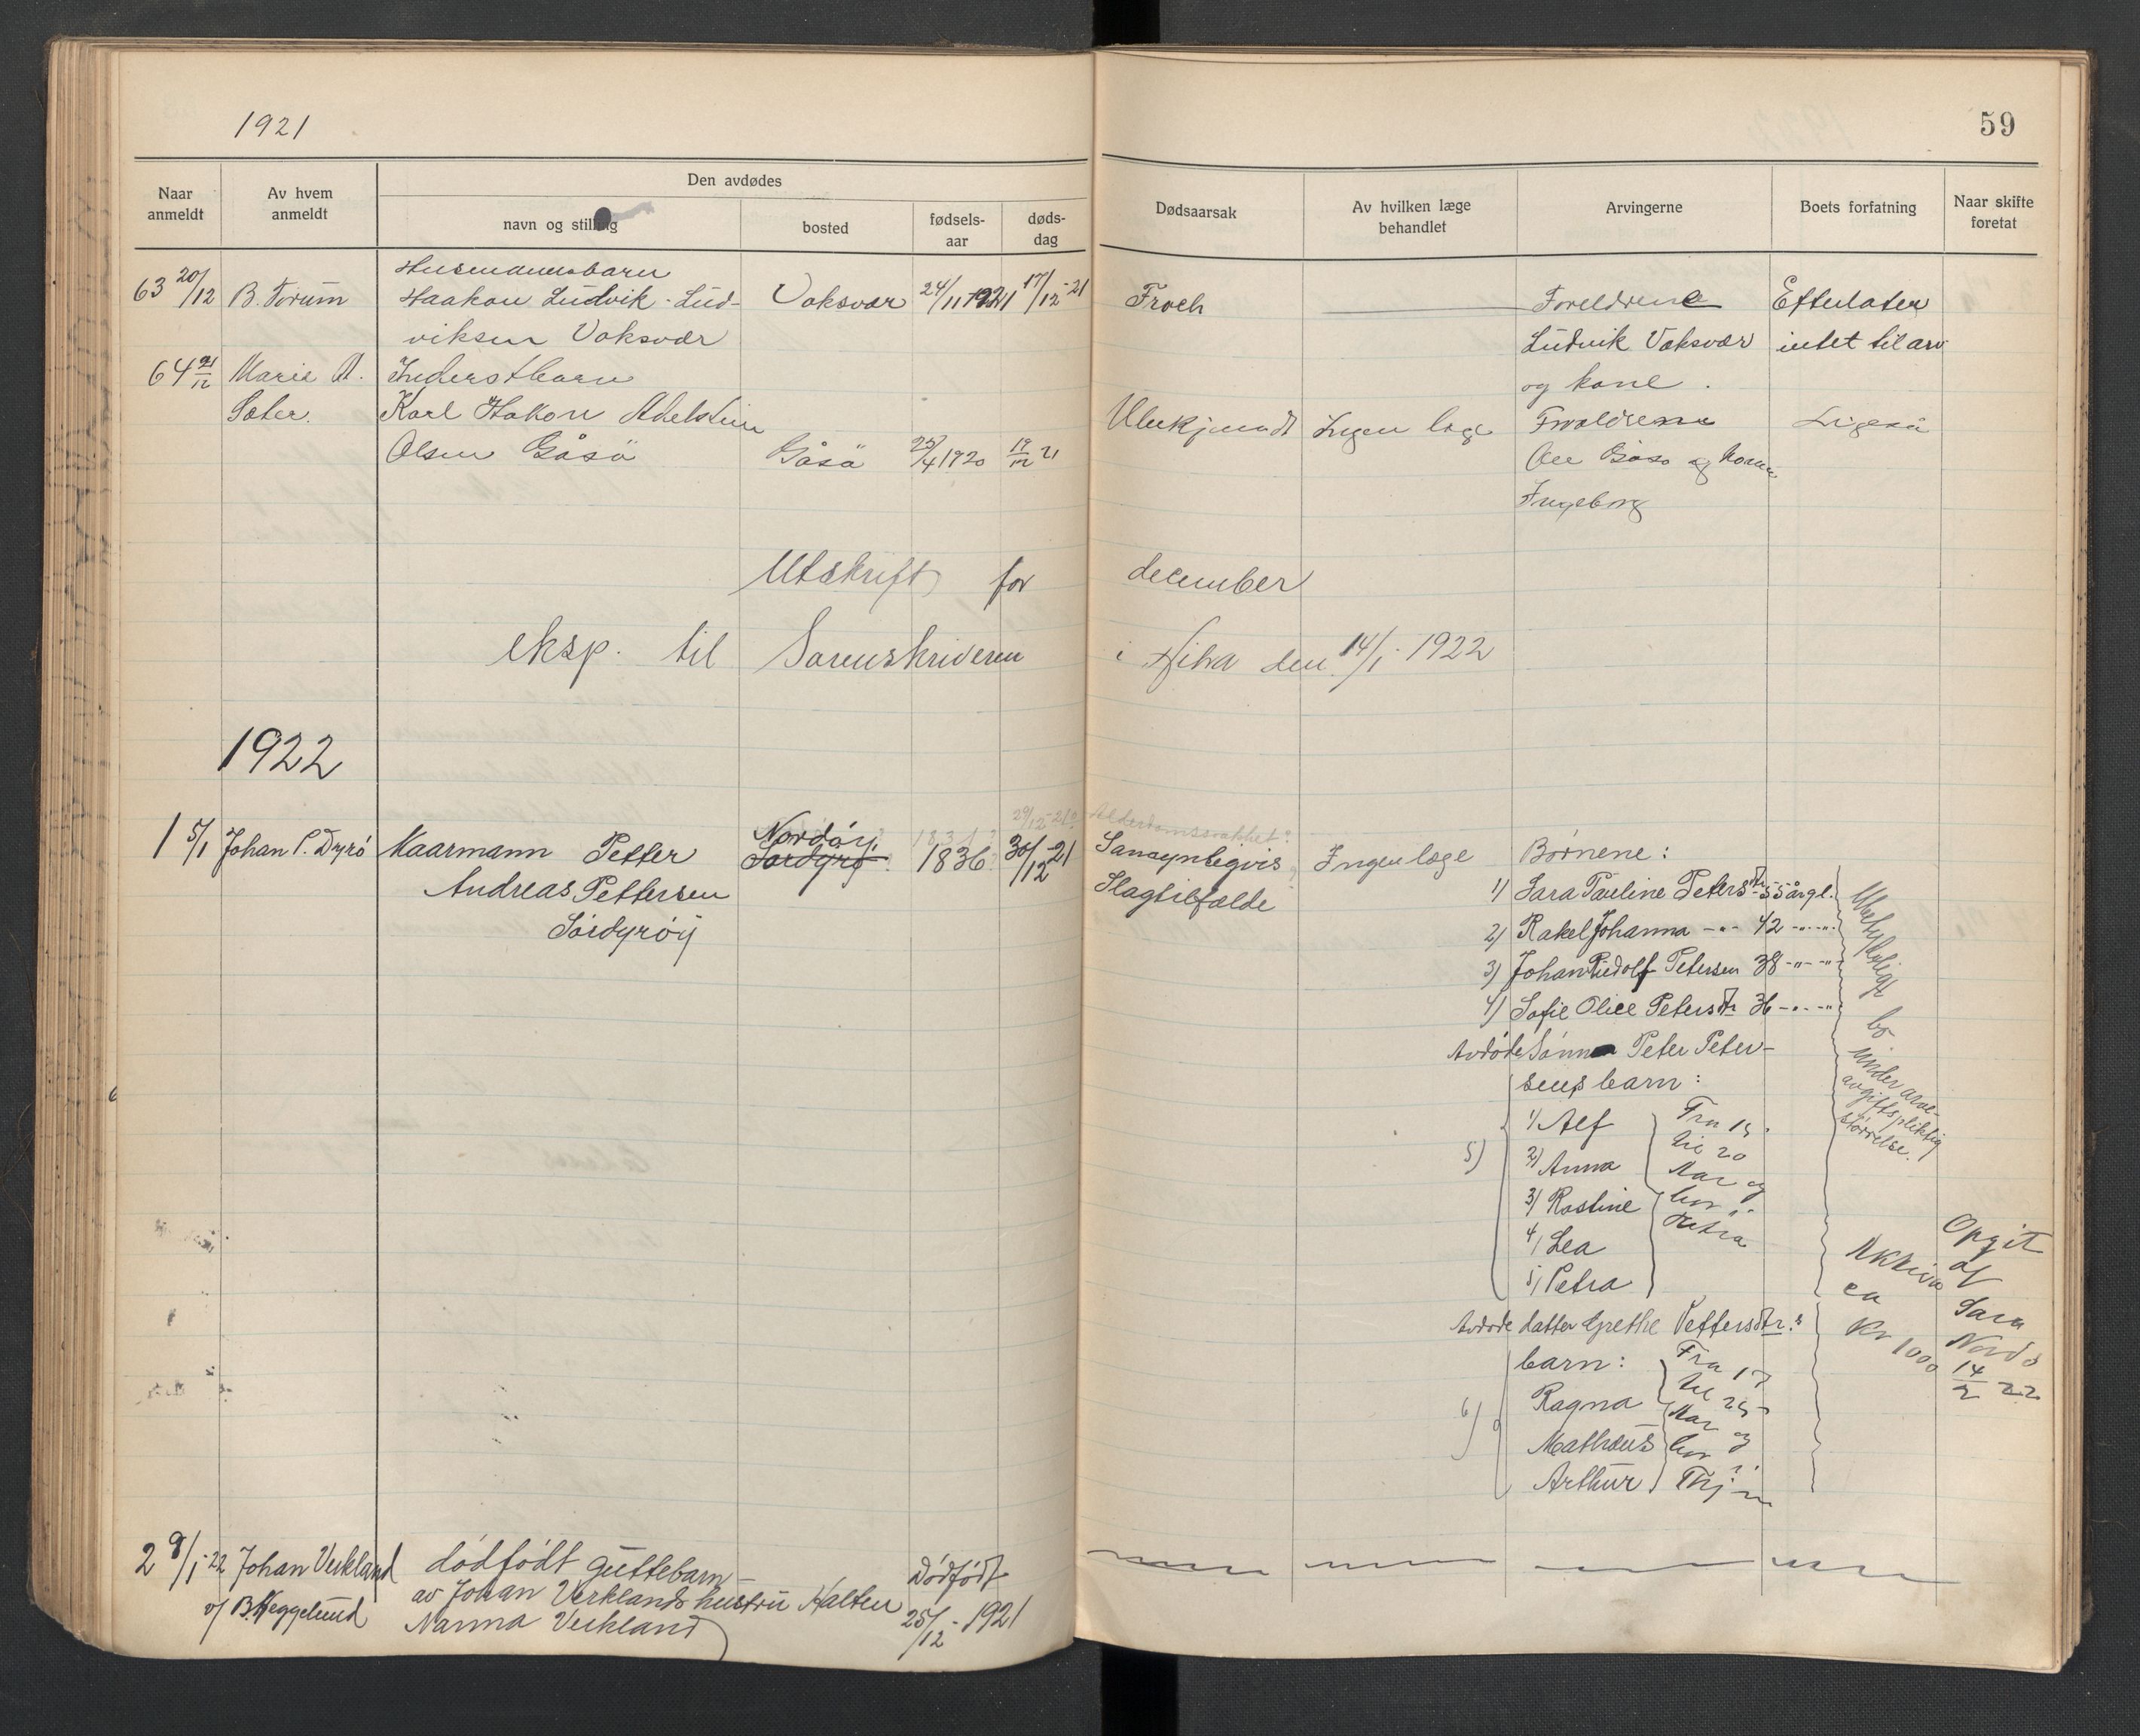 1921
59
Naar anmeldt
Av hvem anmeldt
Den avdødes
navn og stilling
bosted
fødsels-aar
døds-dag
Dødsaarsak
Av hvilken læge behandlet
Arvingerne
Boets forfatning
Naar skifte foretat
63 20/12 B. Torum
Husmannsbarn
Haakon Ludvik Lud-
viksen Vaksvær
Vaksvær 24/11 1921 17/12-21
Foreldrene
Ludvik Vaksvær
og kone.
Efterlater
intet til arv
64 21/12 Marie A.
Sæter.
Inderstbarn
Karl Hakon Adelstein
Olsen Gåsö
Gåsö 25/4 1920 19/12 21
Ubekjendt Ingen læge
Forældrene
Ole Gåsö og Kone
Ingeborg
Ligeså
Utskrift for december
eksp. til Sorenskriveren i Hitra den 14/1-1922
1922
1 5/1 Johan P. Dyrö
Kaarmann Petter
Andreas Pettersen
Sördyröy
Nordöy,
Sördyrö.
1836
29/12-21?
30/12-21
Alderdomssvakhet?
Sansynligvis
Slagtilfælde
Ingen læge
Børnene:
1) Sara Pauline Petersdtr 55 år gl.
2) Rakel Johanna -"- 42 -"-"-
3) Johan Rudolf Petersen 38 -"-"-
4) Sofie Olise Petersdtr 36 -"-"-
Avdøde Sønn Peter Peter-
sens barn:
5)
1) Alf
2) Anna
3) Rostine
4) Lea
5) Petra
Fra 15
til 20
Aar og
bor i
Hitra
Avdøde datter Grethe Pettersdtr.s
barn:
6)
Ragna
Mathæus
Arthur
Fra 17
til 25
Aar og
bor i
Ubetydeligt
bo
under arve-
avgiftspliktig
størrelse.
Aktiva
ca
Kr 1000
Opgit
af
Sara
Nordö
14/2 22
2 9/1-22 Johan Verkland
v/ B. Heggelund
dödfödt guttebarn
av Johan Verklands hustru
Nanna Verkland
Kalten
Dödfödt
25/12-1921